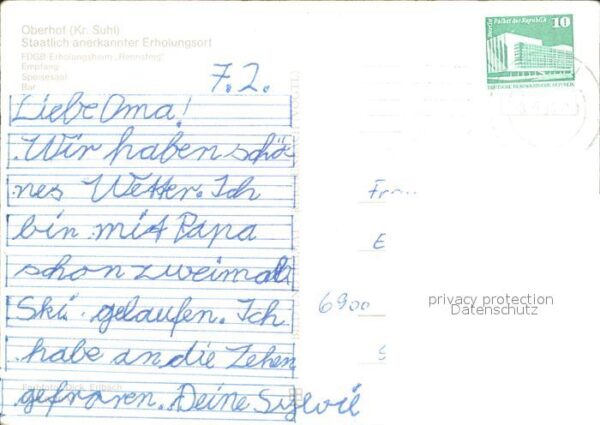 Oberhof (Kr. Suhl)
Staatlich anerkannter Erholungsort
FDGB-Erholungsheim „Rennsteig"
Empfang
Speisesaal
Bar
7.2.
Liebe Oma!
Wir haben schö
nes Wetter. Ich
bin mit Papa
schon zweimal
Ski gelaufen. Ich
habe an die Zehen
gefroren. Deine Sylvie
10
Palast der Republik
DEUTSCHE DEMOKRATISCHE REPUBLIK
6900
privacy protection
Datenschutz